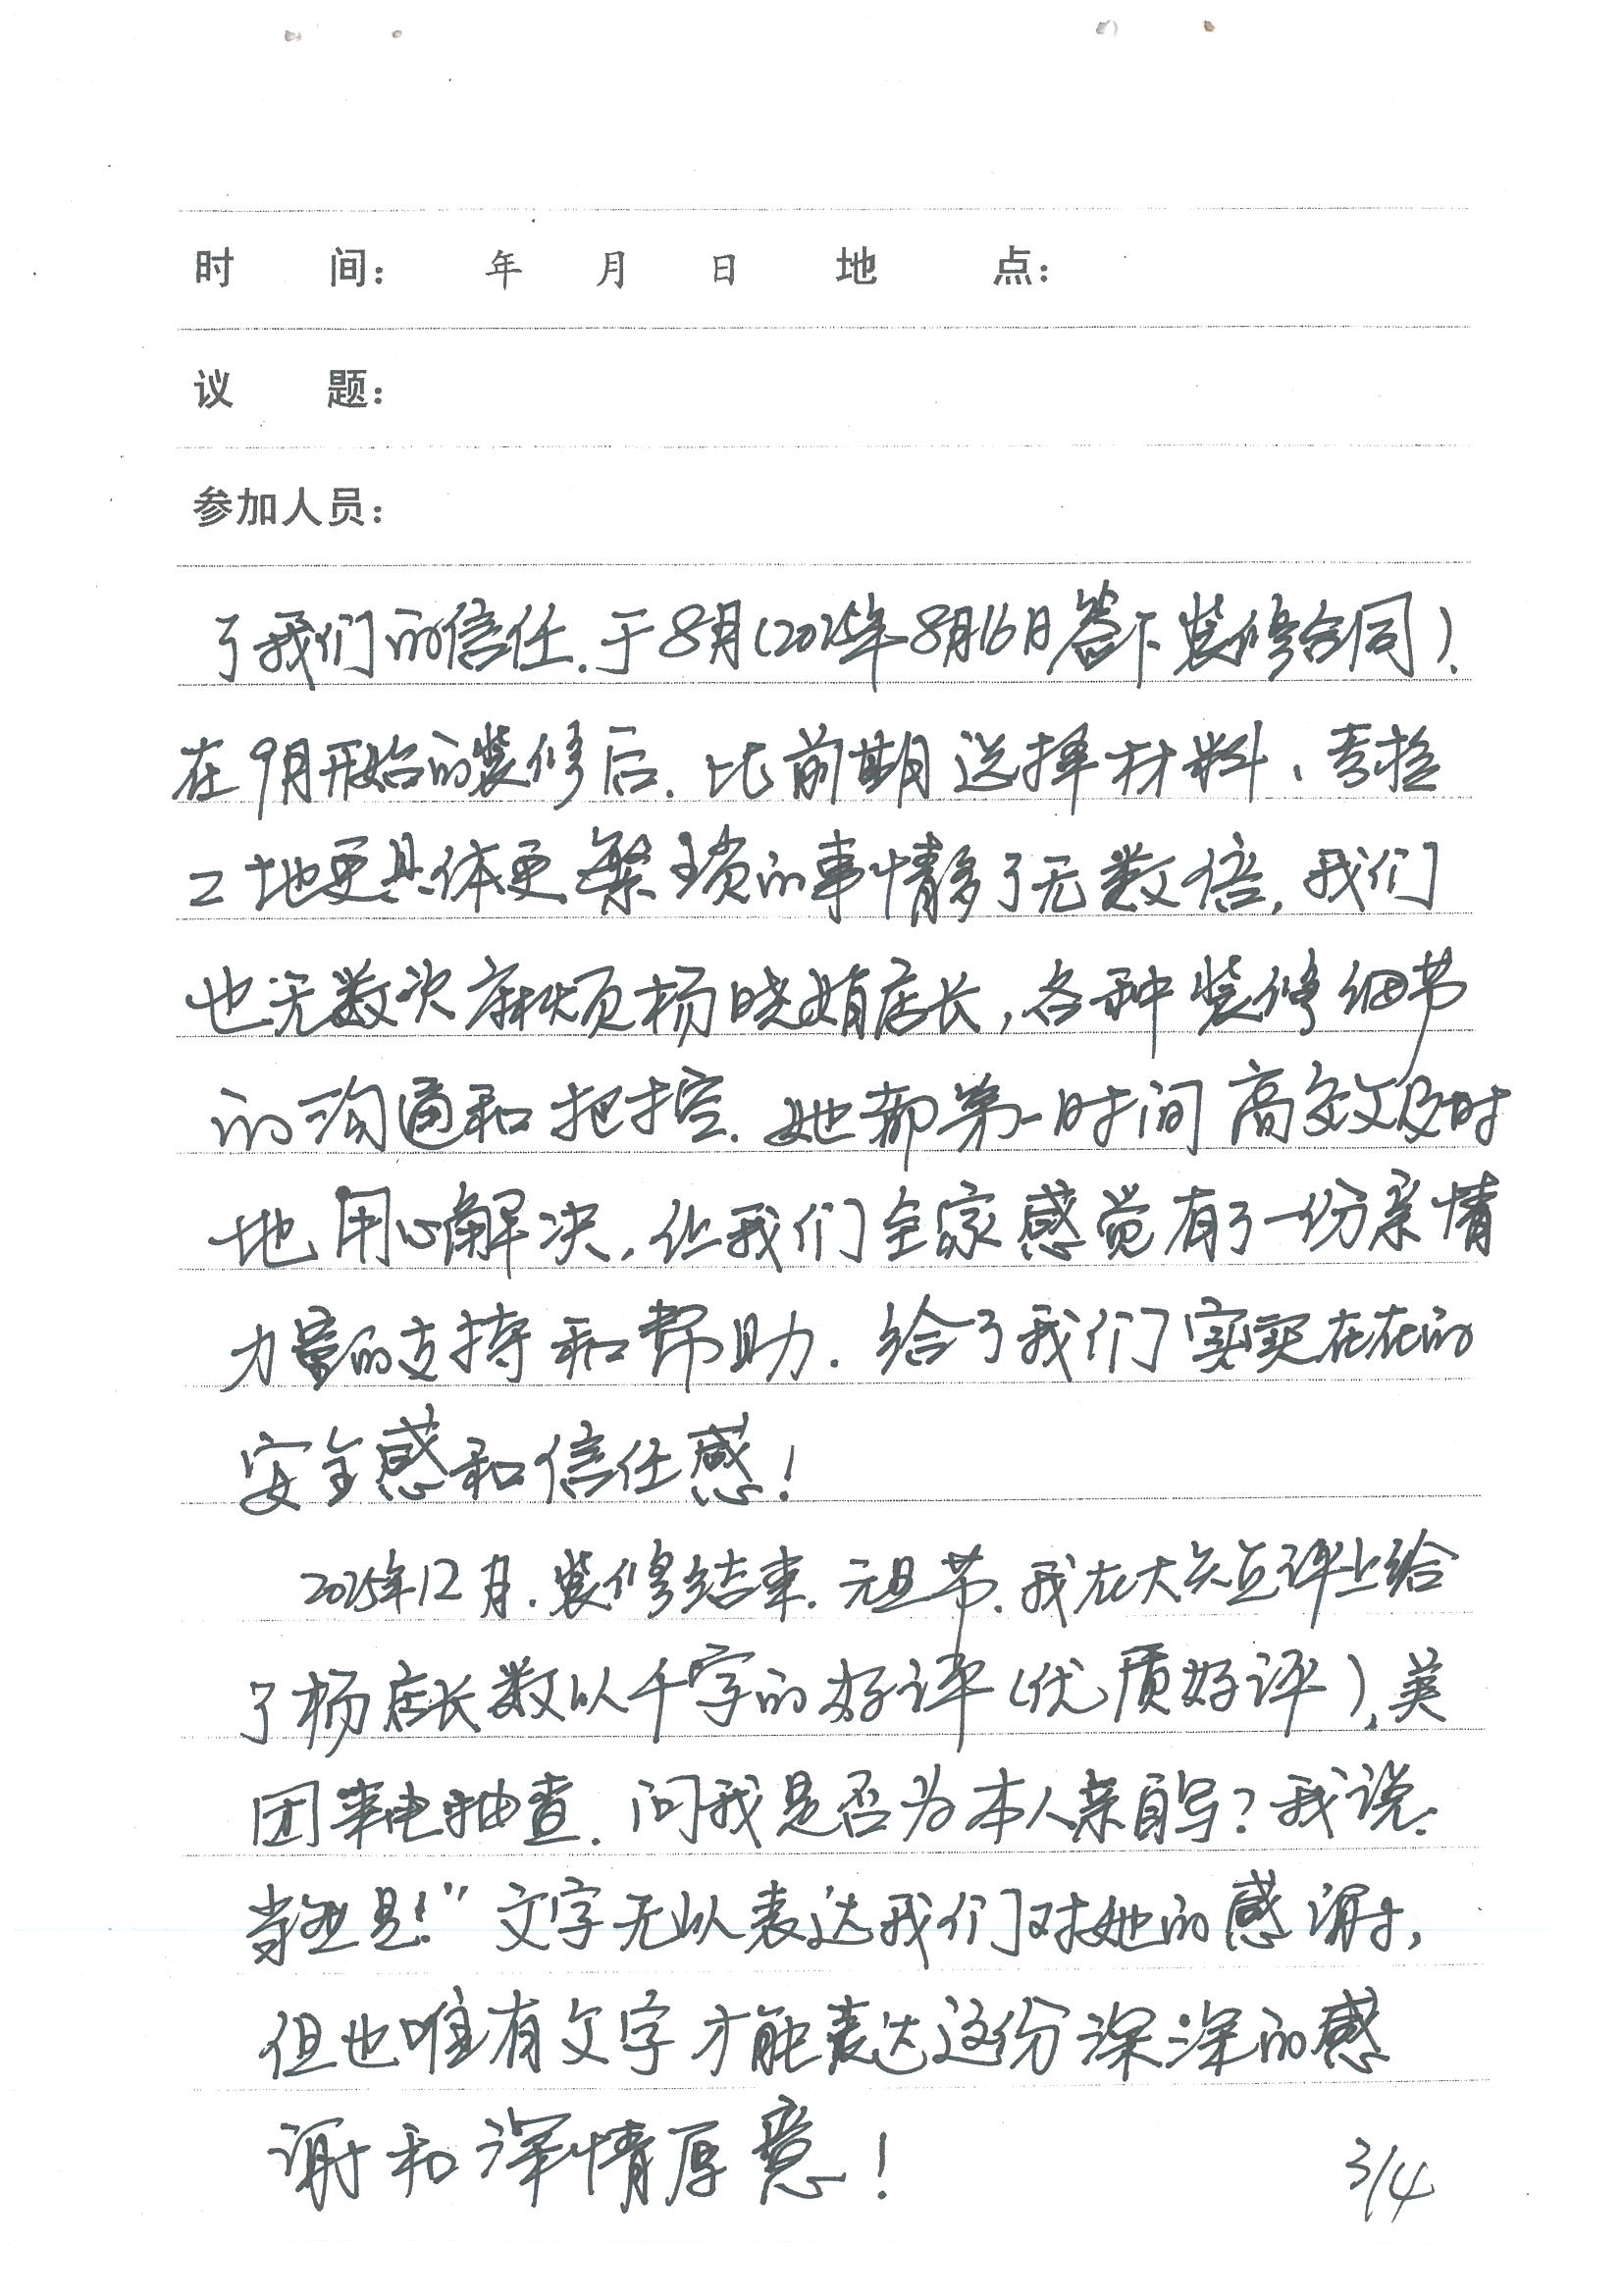 时 间： 年 月 日 地 点：
议 题：
参加人员：
了我们的信任.于8月(2025年8月16日签下装修合同).
在9月开始的装修后.比前期选择材料、查捡
工地更具体更繁琐的事情多了无数倍,我们
也无数次麻烦杨晓娟店长,各种装修细节
的沟通和把控.她都第一时间高效及时
地用心解决,让我们全家感觉有了一份亲情
力量的支持和帮助.给了我们实实在在的
安全感和信任感!
2025年12月.装修结束.元旦节.我在大众点评上给
了杨店长数以千字的好评(优质好评),美
团来电抽查.问我是否为本人亲自写?我说.
当然是!"文字无以表达我们对她的感谢,
但也唯有文字才能表达这份深深的感
谢和深情厚意!
3/4